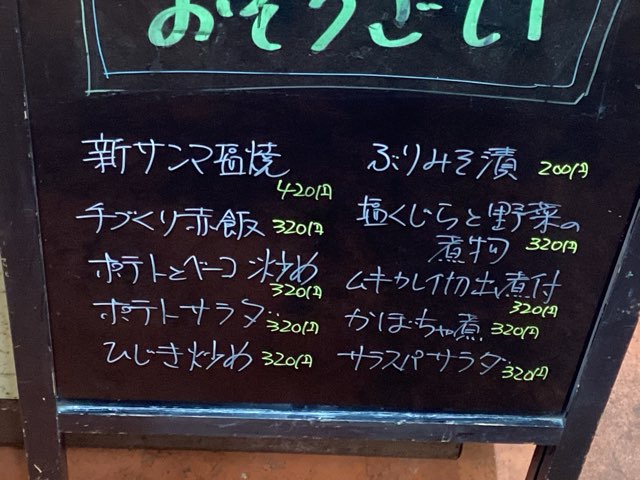 おそうざい
新サンマ塩焼
420円
手づくり赤飯 320円
ポテトとベーコン炒め
320円
ポテトサラダ 320円
ひじき炒め 320円
ぶりみそ漬 200円
塩くじらと野菜の
煮物 320円
ムキカレイ切出し煮付
320円
かぼちゃ煮 320円
サラスパサラダ 320円